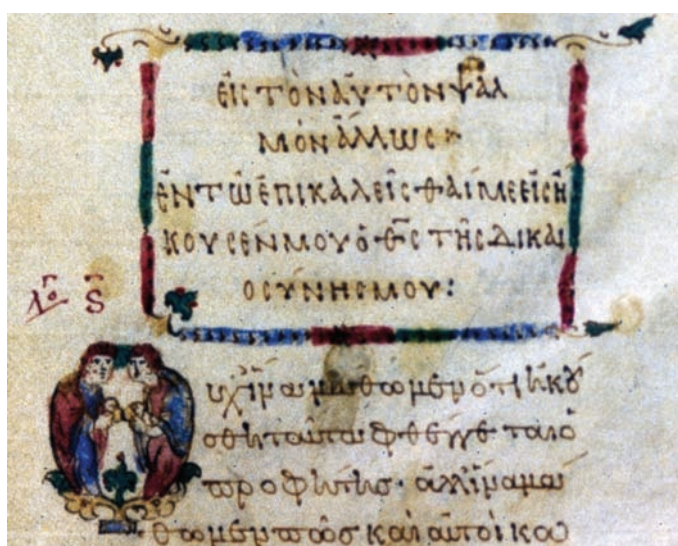 ΕἸΣ ΤῸΝ ΑΥ̓ΤῸΝ ΨΑΛ
ΜῸΝ ἌΛΛΩΣ
ἘΝ ΤΩ͂ ἘΠΙΚΑΛΕΙ͂ΣΘΑΙ ΜΕ ΕἸΣΉ
ΚΟΥΣΈΝ ΜΟΥ Ὁ Θ̅Σ̅ ΤΗ͂Σ ΔΙΚΑΙ
ΟΣΎΝΗΣ ΜΟΥ:
Λο ς
Οὐχ ἵνα μάθωμεν ὅτι ἠκού
σθη ταῦτα φθέγγεται ὁ
προφήτης· ἀλλ ἵνα μά
θωμεν πῶς καὶ αὐτοὶ κα